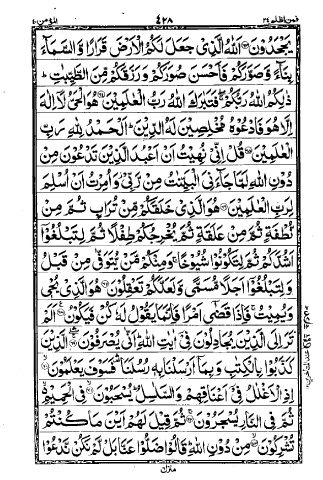 فمن اظلم ۲۴ ۴۲۸ المؤمن ۴۰
يَجْحَدُوْنَ ۝ اَللّٰهُ الَّذِيْ جَعَلَ لَكُمُ الْاَرْضَ قَرَارًا وَّالسَّمَآءَ
بِنَآءً وَّصَوَّرَكُمْ فَاَحْسَنَ صُوَرَكُمْ وَرَزَقَكُمْ مِّنَ الطَّيِّبٰتِ ؕ
ذٰلِكُمُ اللّٰهُ رَبُّكُمْ ۚ فَتَبٰرَكَ اللّٰهُ رَبُّ الْعٰلَمِيْنَ ۝ هُوَ الْحَيُّ لَاۤ اِلٰهَ
اِلَّا هُوَ فَادْعُوْهُ مُخْلِصِيْنَ لَهُ الدِّيْنَ ؕ اَلْحَمْدُ لِلّٰهِ رَبِّ
الْعٰلَمِيْنَ ۝ قُلْ اِنِّيْ نُهِيْتُ اَنْ اَعْبُدَ الَّذِيْنَ تَدْعُوْنَ مِنْ
دُوْنِ اللّٰهِ لَمَّا جَآءَنِيَ الْبَيِّنٰتُ مِنْ رَّبِّيْ ؗ وَاُمِرْتُ اَنْ اُسْلِمَ
لِرَبِّ الْعٰلَمِيْنَ ۝ هُوَ الَّذِيْ خَلَقَكُمْ مِّنْ تُرَابٍ ثُمَّ مِنْ
نُّطْفَةٍ ثُمَّ مِنْ عَلَقَةٍ ثُمَّ يُخْرِجُكُمْ طِفْلًا ثُمَّ لِتَبْلُغُوْۤا
اَشُدَّكُمْ ثُمَّ لِتَكُوْنُوْا شُيُوْخًا ۚ وَمِنْكُمْ مَّنْ يُّتَوَفّٰى مِنْ قَبْلُ
وَلِتَبْلُغُوْۤا اَجَلًا مُّسَمًّى وَّلَعَلَّكُمْ تَعْقِلُوْنَ ۝ هُوَ الَّذِيْ يُحْيٖ
وَيُمِيْتُ ۚ فَاِذَا قَضٰۤى اَمْرًا فَاِنَّمَا يَقُوْلُ لَهٗ كُنْ فَيَكُوْنُ ۝ اَلَمْ
تَرَ اِلَى الَّذِيْنَ يُجَادِلُوْنَ فِيْۤ اٰيٰتِ اللّٰهِ ؕ اَنّٰى يُصْرَفُوْنَ ۝ الَّذِيْنَ
كَذَّبُوْا بِالْكِتٰبِ وَبِمَاۤ اَرْسَلْنَا بِهٖ رُسُلَنَا ۛ فَسَوْفَ يَعْلَمُوْنَ ۝
اِذِ الْاَغْلٰلُ فِيْۤ اَعْنَاقِهِمْ وَالسَّلٰسِلُ ؕ يُسْحَبُوْنَ ۝ فِي الْحَمِيْمِ ۙ
ثُمَّ فِي النَّارِ يُسْجَرُوْنَ ۝ ثُمَّ قِيْلَ لَهُمْ اَيْنَ مَا كُنْتُمْ
تُشْرِكُوْنَ ۝ مِنْ دُوْنِ اللّٰهِ ؕ قَالُوْا ضَلُّوْا عَنَّا بَلْ لَّمْ نَكُنْ نَّدْعُوْا
منزل